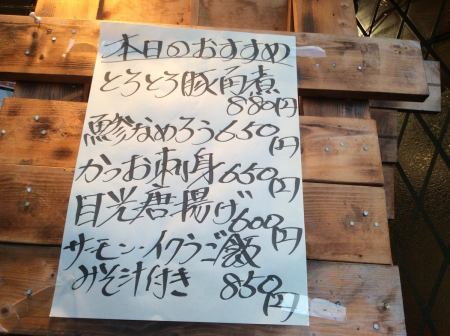 本日のおすすめ
とろとろ豚角煮
880円
鯵なめろう650円
かつお刺身650円
目光唐揚げ600円
サーモン・イクラご飯
みそ汁付き 850円